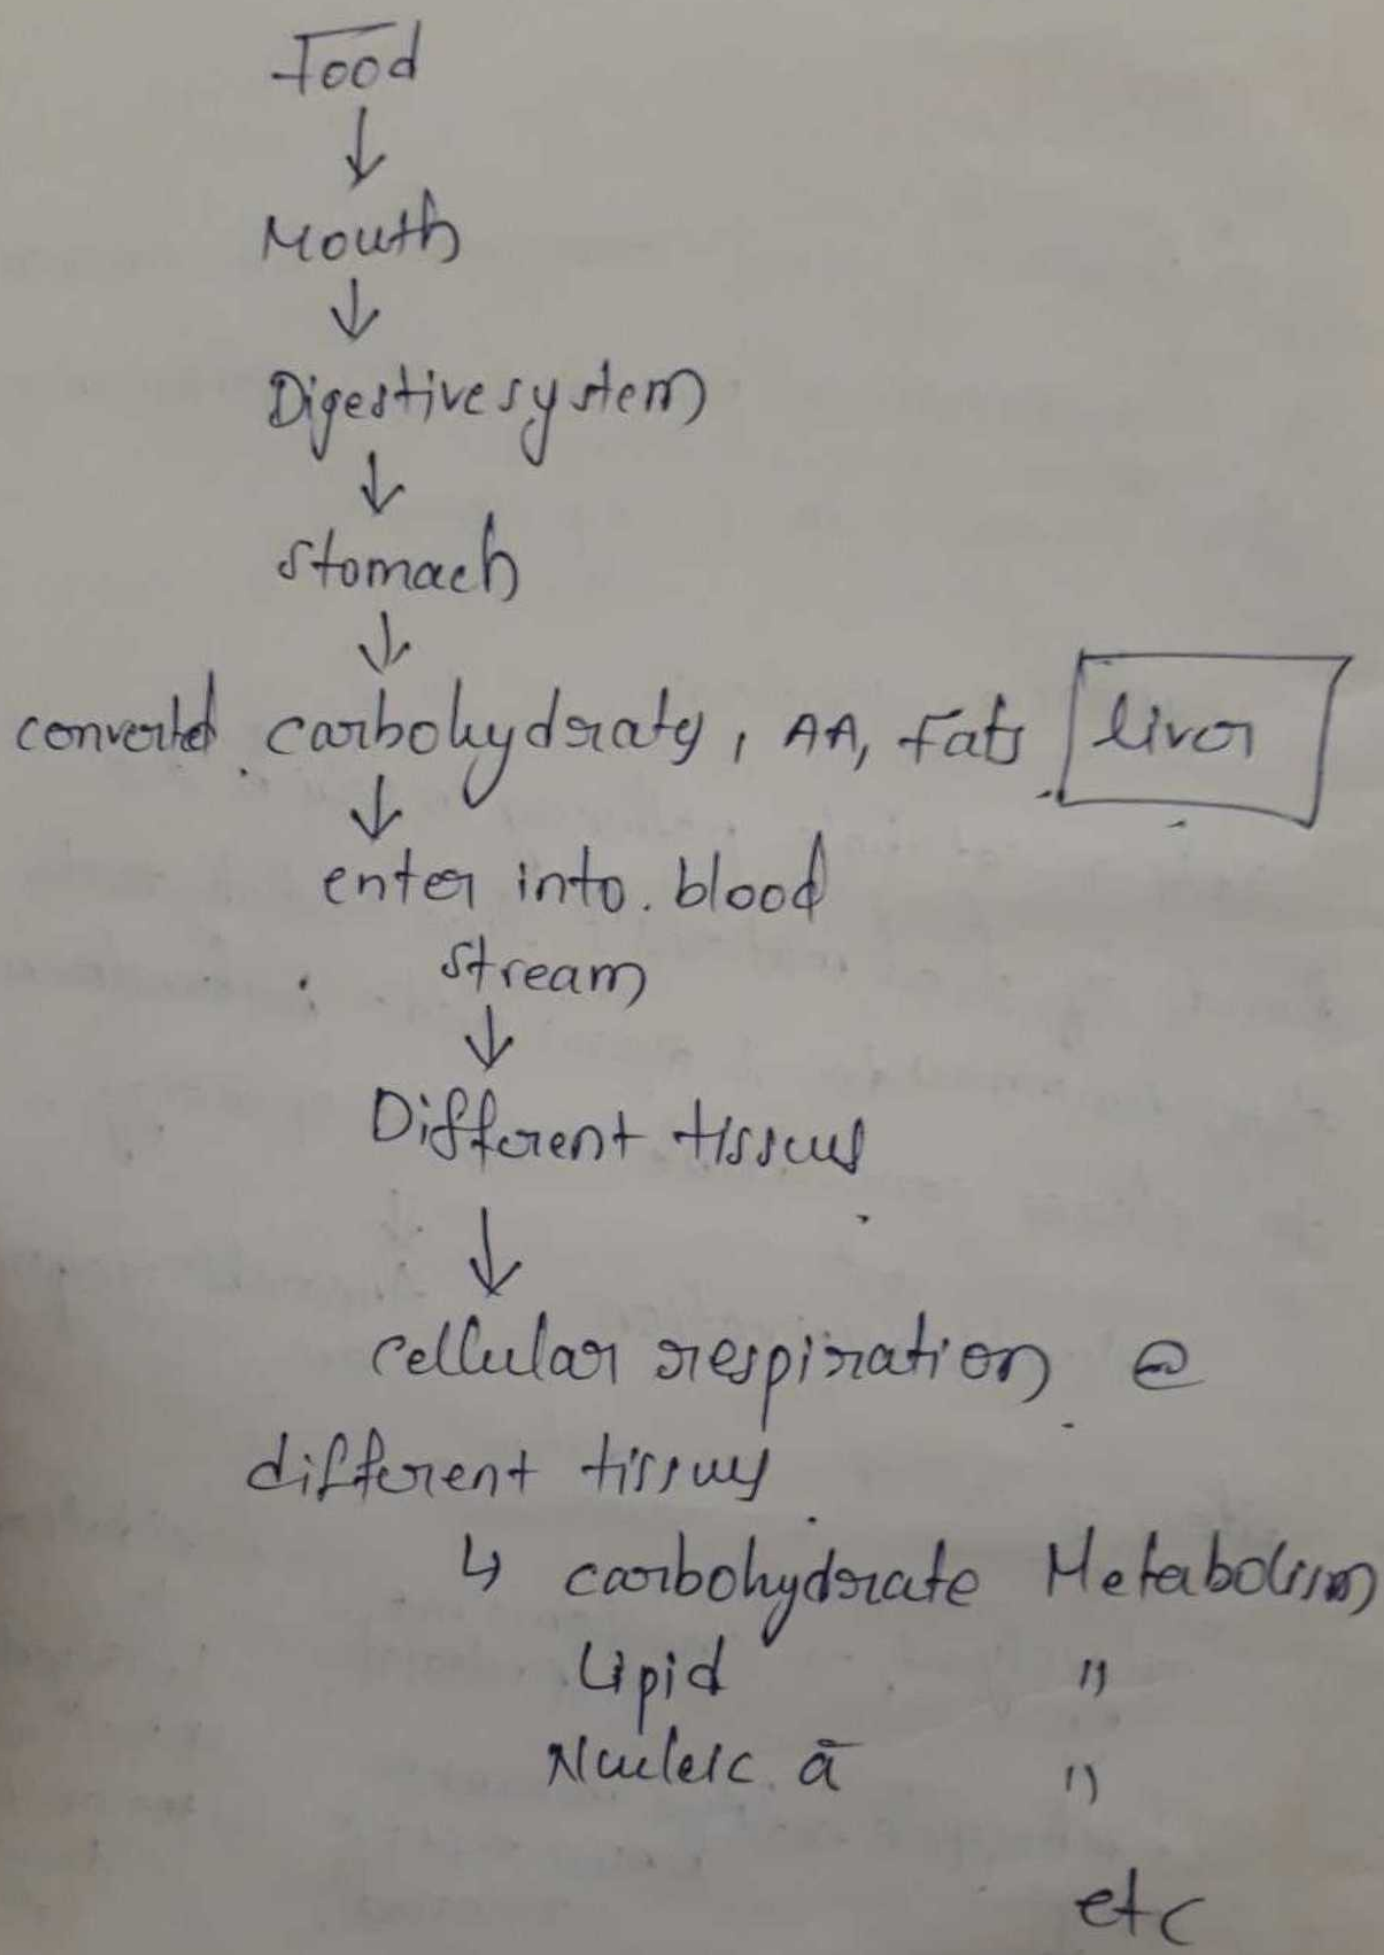 Food
↓
Mouth
↓
Digestive system
↓
Stomach
↓
converted carbohydrates, AA, Fats liver
↓
enter into blood
stream
↓
Different tissues
↓
cellular respiration @
different tissues
↳ carbohydrate Metabolism
Lipid "
Nucleic a "
etc